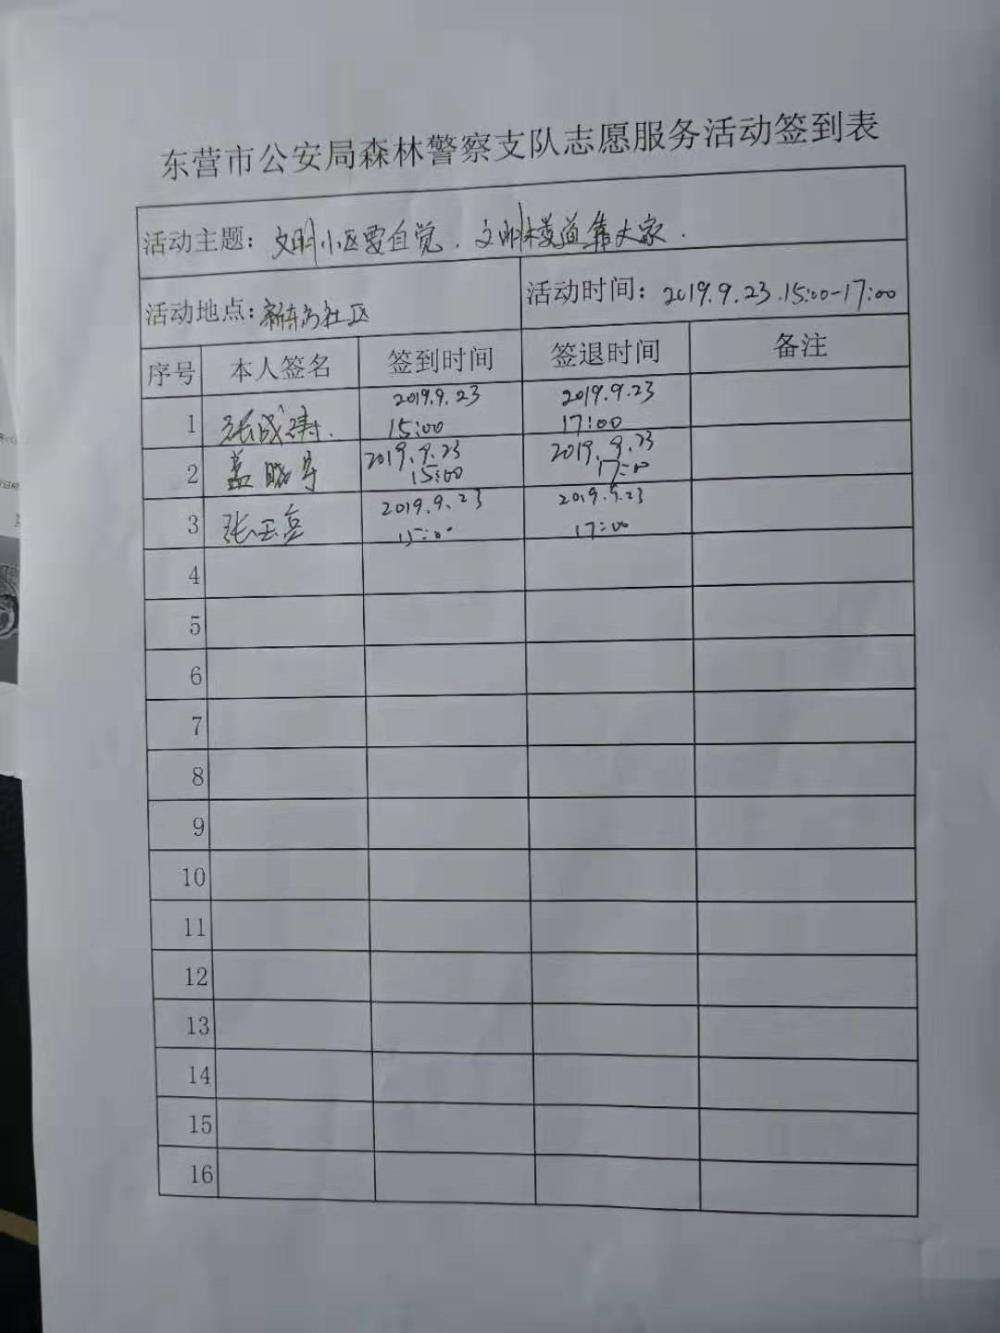 东营市公安局森林警察支队志愿服务活动签到表
活动主题：文明小区要自觉．文明楼道靠大家．
活动地点：社区 活动时间：2019.9.23.15:00-17:00
序号 本人签名 签到时间 签退时间 备注
1 张成涛. 2019.9.23 15:00 2019.9.23 17:00
2 盖晓 2019.9.23 15:00 2019.9.23 17:00
3 张玉 2019.9.23 15:00 2019.9.23 17:00
4
5
6
7
8
9
10
11
12
13
14
15
16